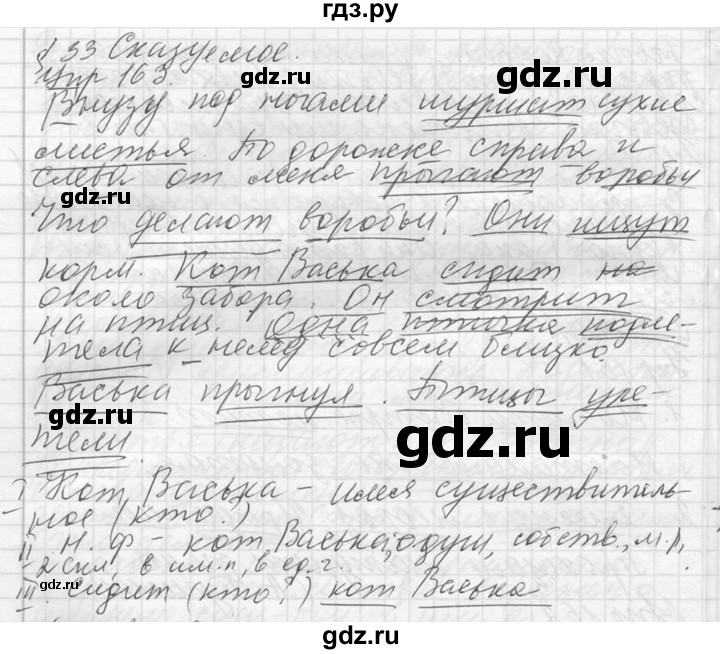 гдз.ру
§ 33 Сказуемое.
упр 163. gdz.ru gdz.ru
Внизу под ногами шуршат сухие
листья. По дорожке справа и
gdz.ru gdz.ru
слева от меня прыгают воробьи
Что делают воробьи? Они ищут
корм. Кот Васька сидит на
около забора. Он смотрит
gdz.ru
на птиц. Одна птичка подле-
тела к нему совсем близко.
Васька прыгнул. Птицы уле-
gdz.ru gdz.ru
тели.
I Кот Васька – имя существитель-
ное (кто?)
II н. ф – кот Васька, одуш, собств., м.р,
2 скл, в им.п, в ед.ч.
III. сидит (кто?) кот Васька
gdz.ru gdz.ru
gdz.ru